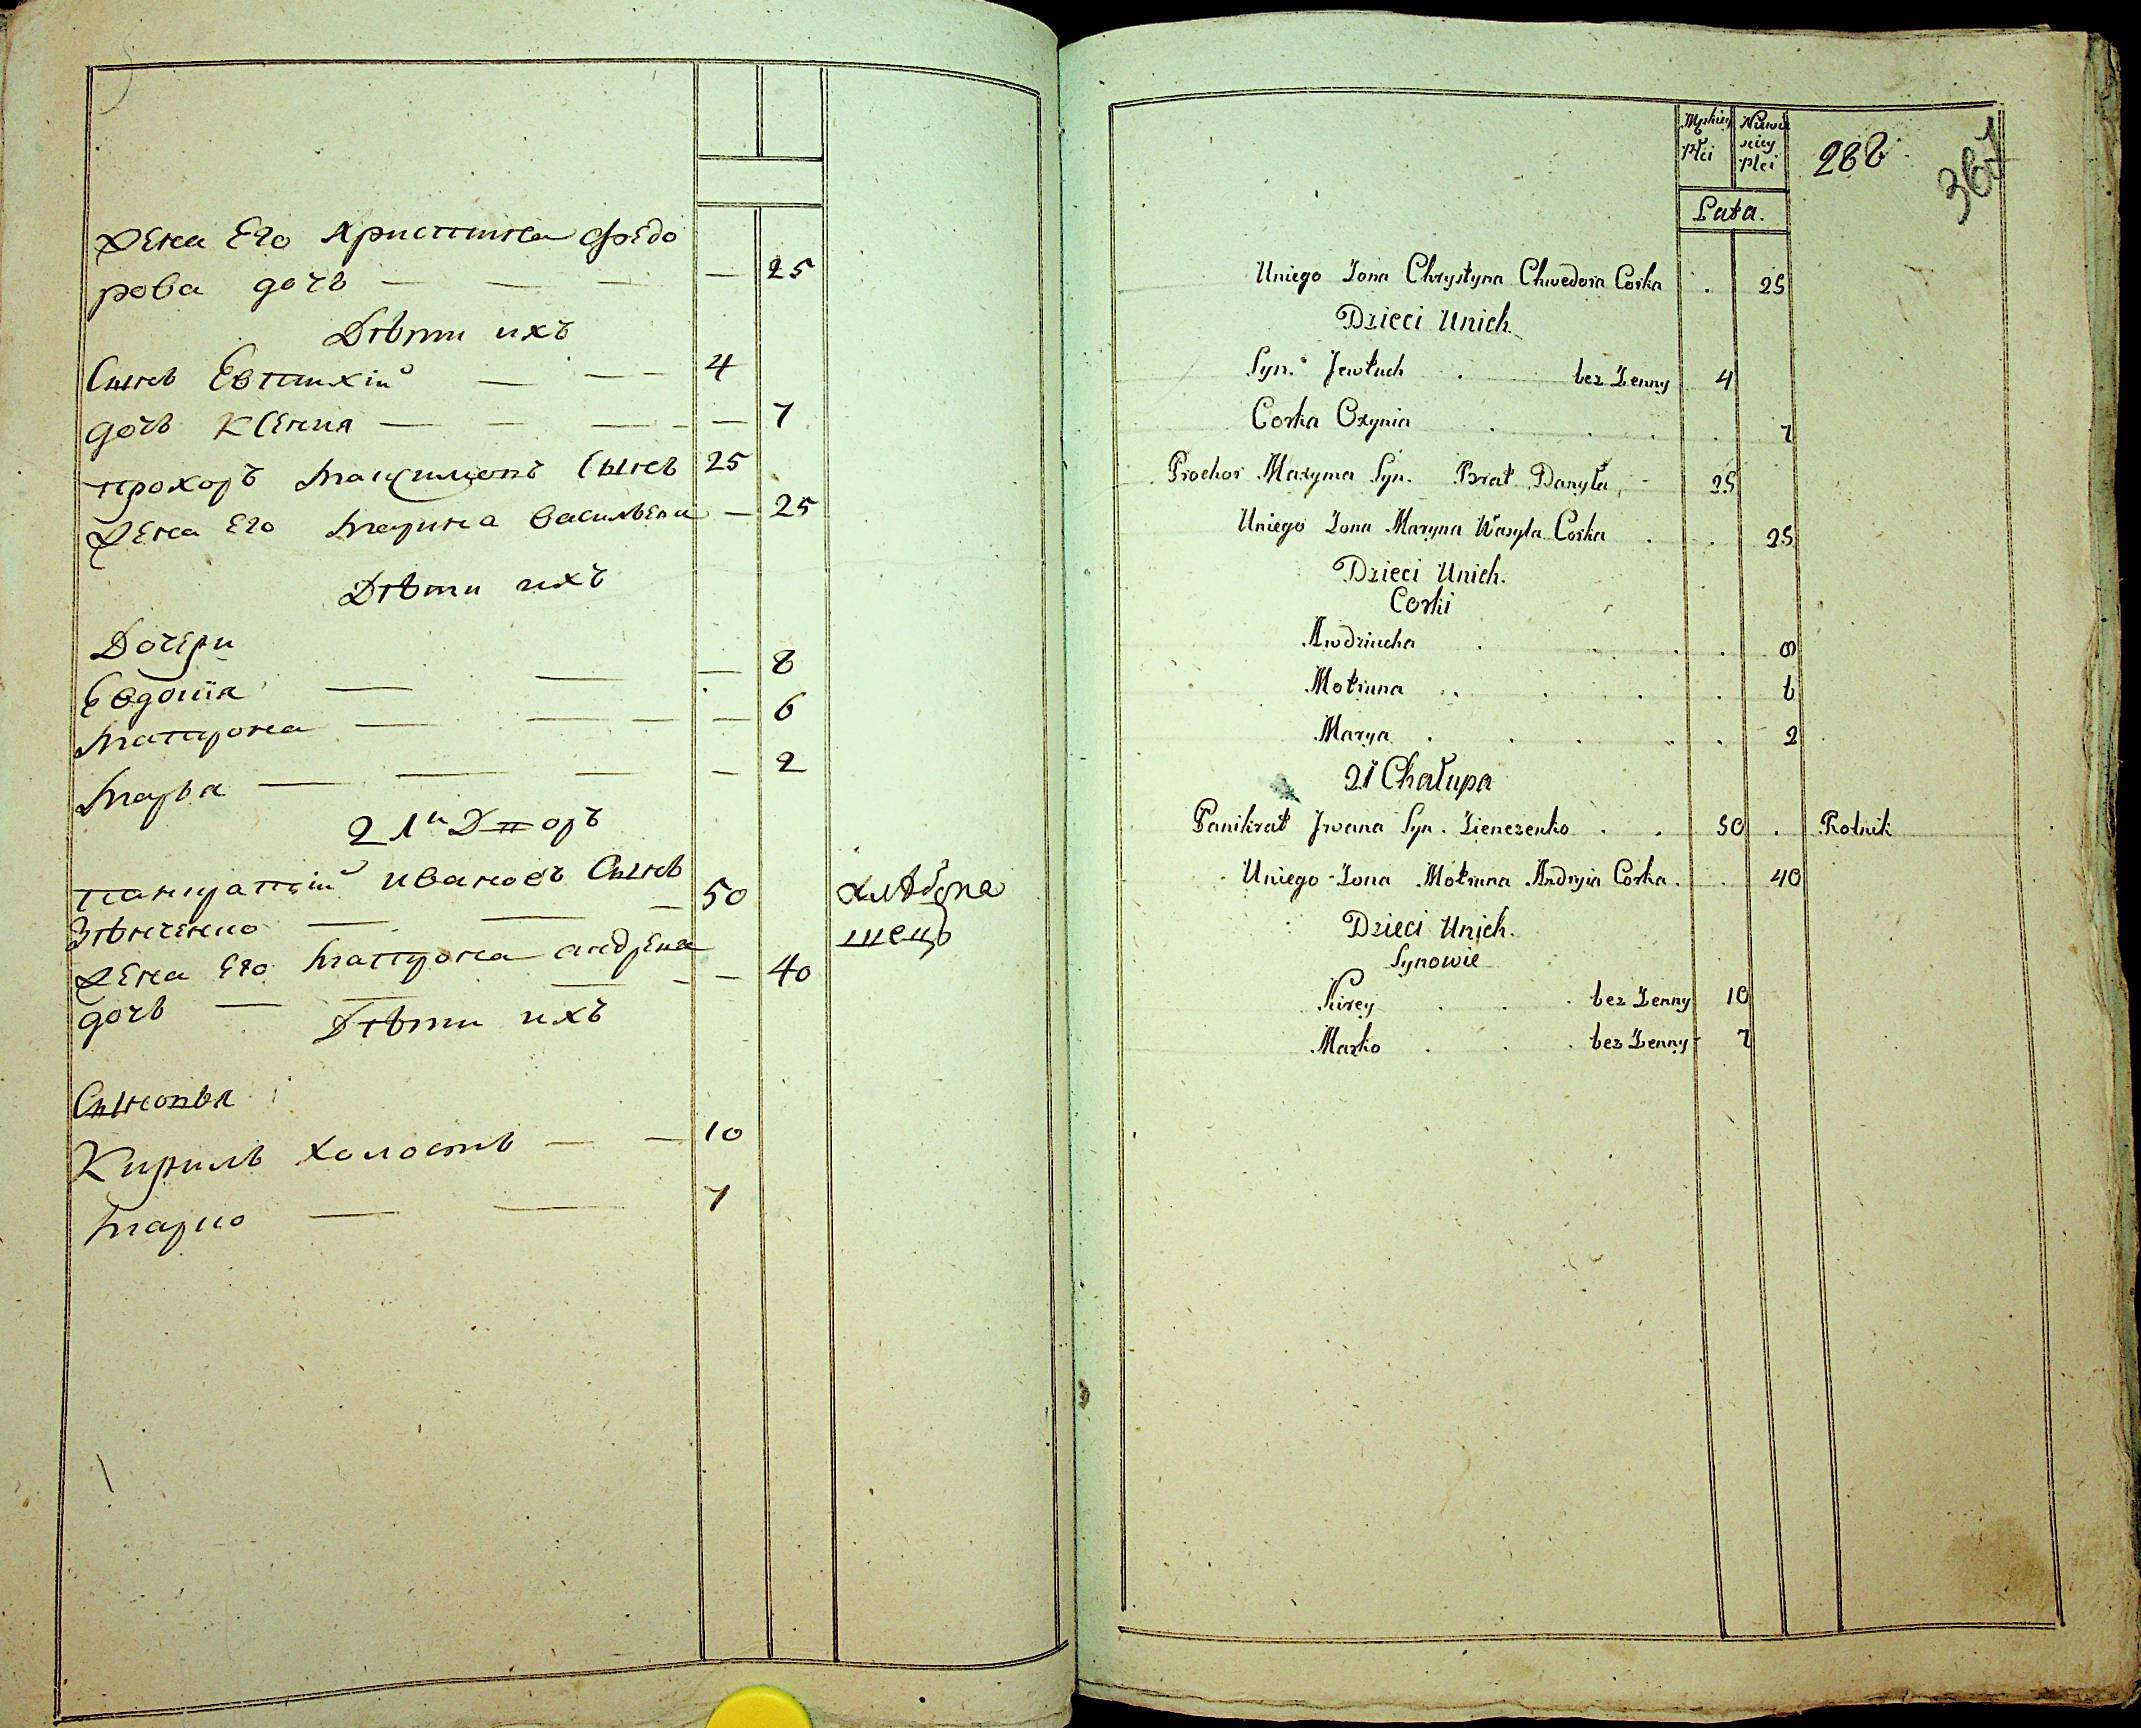 Жена Его Христина Федо
рова дочь — — — — 25
Дѣти ихъ
Сынъ Евтихій — — — 4
дочь Ксения — — — — — 7
прохоръ Максимовъ Сынъ 25
Жена Его Марина Васильева — 25
Дѣти ихъ
Дочери
Евдокія — — — 8
Матрона — — — — 6
Марья — — — — 2
21й Дворъ
панкратій Ивановъ Сынъ
Зѣнченко — — — 50 хлѣбопа
шецъ
Жена Его Матрона андрева
дочь — — — — — 40
Дѣти ихъ
Сыновья
Кирилъ холостъ — — 10
Марко — — 7
Męskiey Płci
Niewieściey Płci
Lata.
288
367
Uniego Żona Chrystyna Chwedora Corka . 25
Dzieci Unich.
Syn. Jewtuch . bez Żenny 4
Corka Oxynia . . . . 7
Prochor Maxyma Syn. Brat Danyła, - 25
Uniego Żona Maryna Wasyla Corka . . 25
Dzieci Unich.
Corki
Awdziucha . . . . . 8
Motruna . . . . 6
Marya . . . . . 2
21 Chałupa
Panikrat Jwana Syn. Zienczenko . . 50 . Rolnik
Uniego Żona Motruna Andryia Corka . . 40
Dzieci Unich.
Synowie
Kirey . . . bez Żenny 10
Marko . . . bez Żenny 7